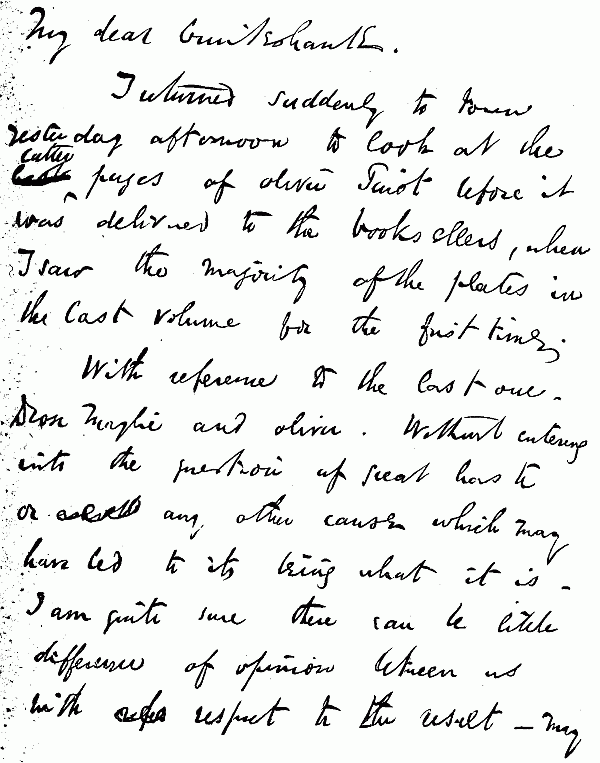 My dear Cruikshank.
I returned suddenly to town
yesterday afternoon to look at the
latter
pages of Oliver Twist before it
was delivered to the booksellers, when
I saw the majority of the plates in
the last volume for the first time.
With reference to the last one -
Rose Maylie and Oliver. Without entering
into the question of great haste
or any other cause which may
have led to its being what it is -
I am quite sure there can be little
difference of opinion between us
with respect to the result - may